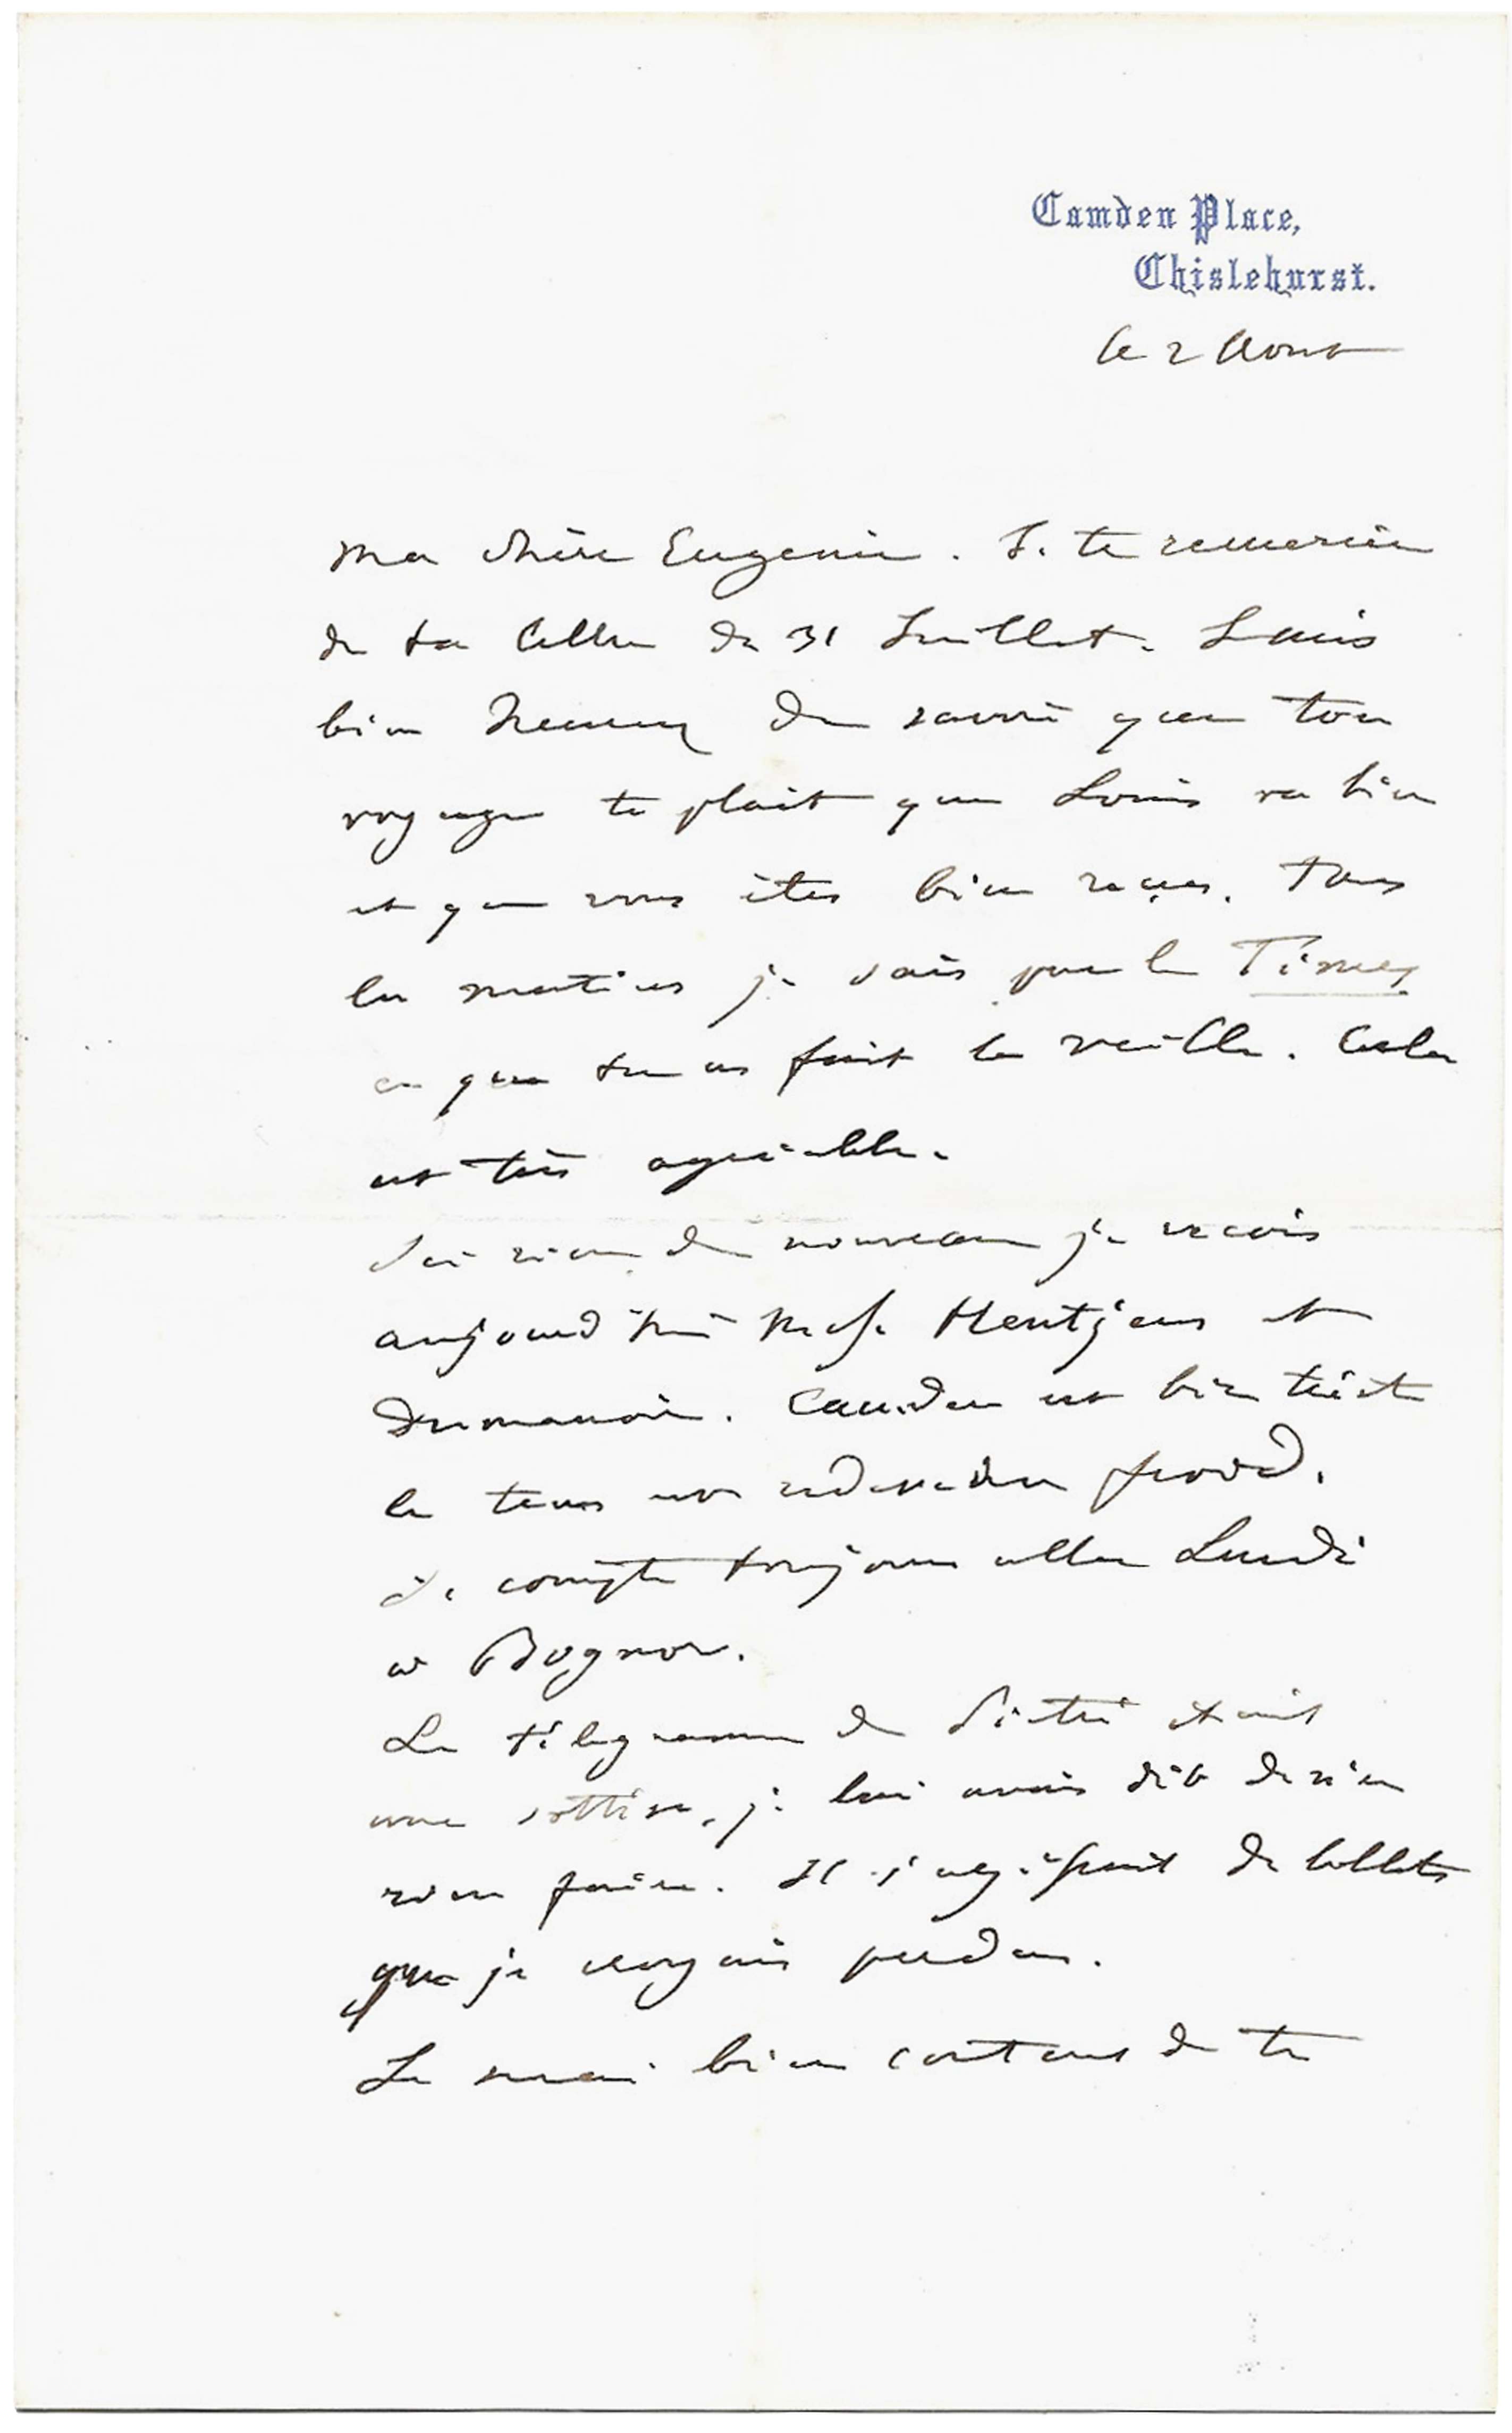 Camden Place,
Chislehurst.
le 2 Aout
Ma chère Eugenie. Je te remercie
de ta lettre du 31 Juillet. Je suis
bien heureux de savoir que ton
voyage te plait que Louis va bien
et que vous êtes bien reçus. Tous
les matins je sais par le Times
ce que tu as fait la veille. Cela
est très agréable.
Ici rien de nouveau je reçois
aujourd'hui Mrs. Hentjens et
Dumanoir. Camden est bien triste
le tems est redevenu froid.
Je compte toujours aller Lundi
à Bognor.
Le télegramme de Piétri était
une sottise, je lui avais dit de n'en
rien faire. Il s'agissait de billets
que je croyais perdus.
Je serai bien content de te